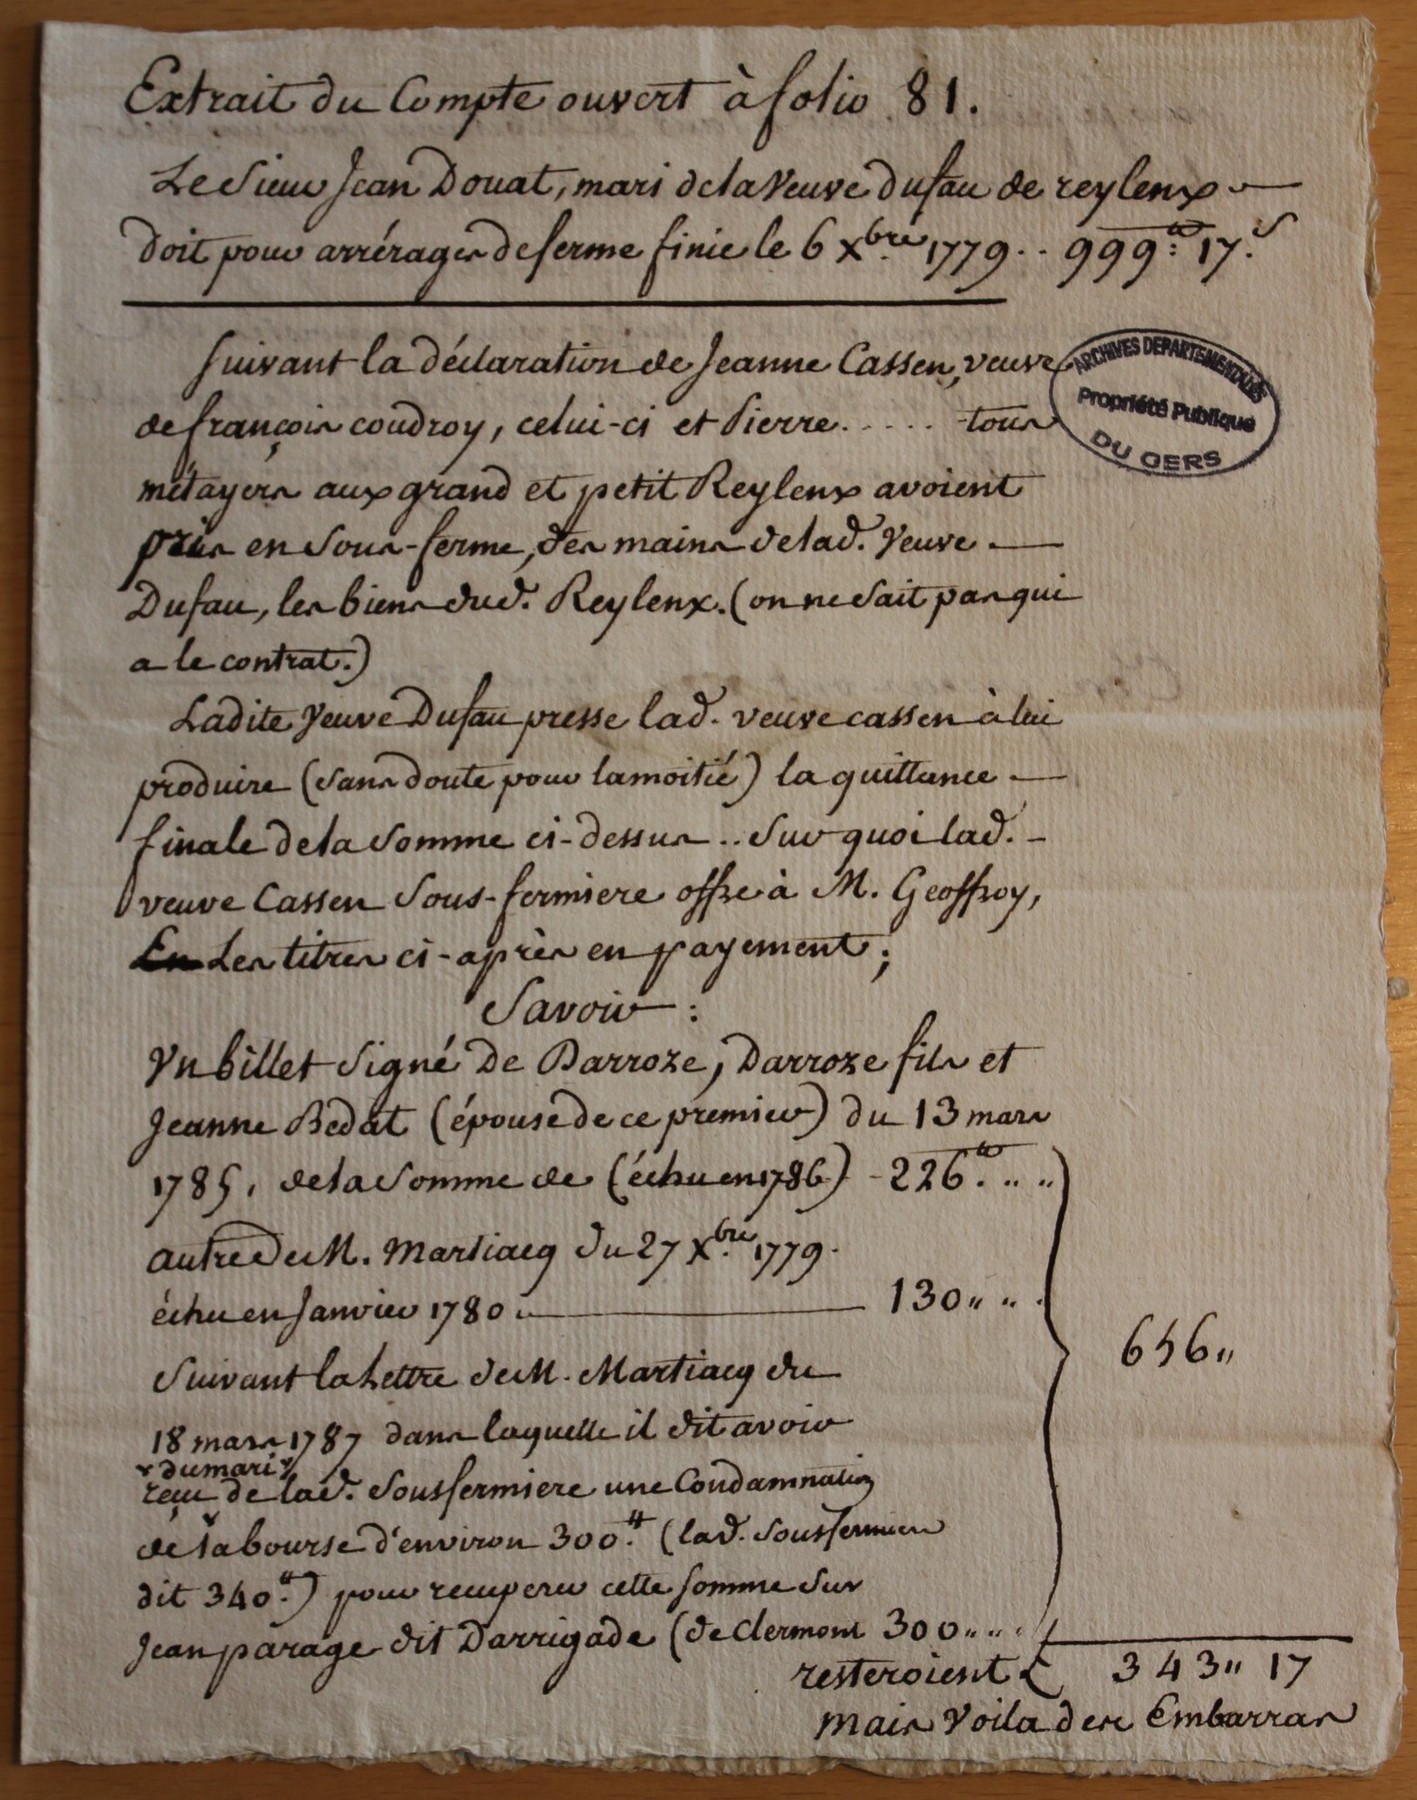 Extrait du Compte ouvert à folio 81.
Le Sieur Jean Douat, mari de la Veuve Dufau de reylenx
doit pour arrérages de ferme finie le 6 Xbre 1779.. 999ᵗᵗ: 17.ˢ
Suivant la déclaration de Jeanne Cassen, veuve
de françois coudroy, celui-ci et Pierre..... tous
métayers aux grand et petit Reylenx avoient
pris en Sous-ferme, des mains de lad. Veuve
Dufau, les biens dud. Reylenx. (on ne Sait pas qui
a le contrat.)
Ladite Veuve Dufau presse lad. veuve cassen à lui
produire (Sans doute pour la moitié) la quittance
finale de la Somme ci-dessus .. Sur quoi lad.
veuve Cassen Sous-fermiere offre à M. Geoffroy,
En Les titres ci-après en payement;
Savoir:
Un billet Signé de Darroze, Darroze fils et
Jeanne Bedat (épouse de ce premier) du 13 mars
1785, de la Somme de (échu en 1786) - 226ᵗᵗ. „ „
autre de M. Martiacq du 27 Xbre 1779.
échu en Janvier 1780 130 „ „
Suivant la Lettre de M. Martiacq du
18 mars 1787 dans laquelle il dit avoir
du mari
reçu de lad. Sousfermiere une Condamnation
de la bourse d'environ 300.ᵗᵗ (lad. Sousfermiere
dit 340.ᵗᵗ) pour recuperer cette Somme Sur
Jean parage dit Darrigade (de Clermont 300 „ „
656 „
resteroient 343 „ 17
mais Voila des Embarras
ARCHIVES DEPARTEMENTALES
Propriété Publique
DU GERS